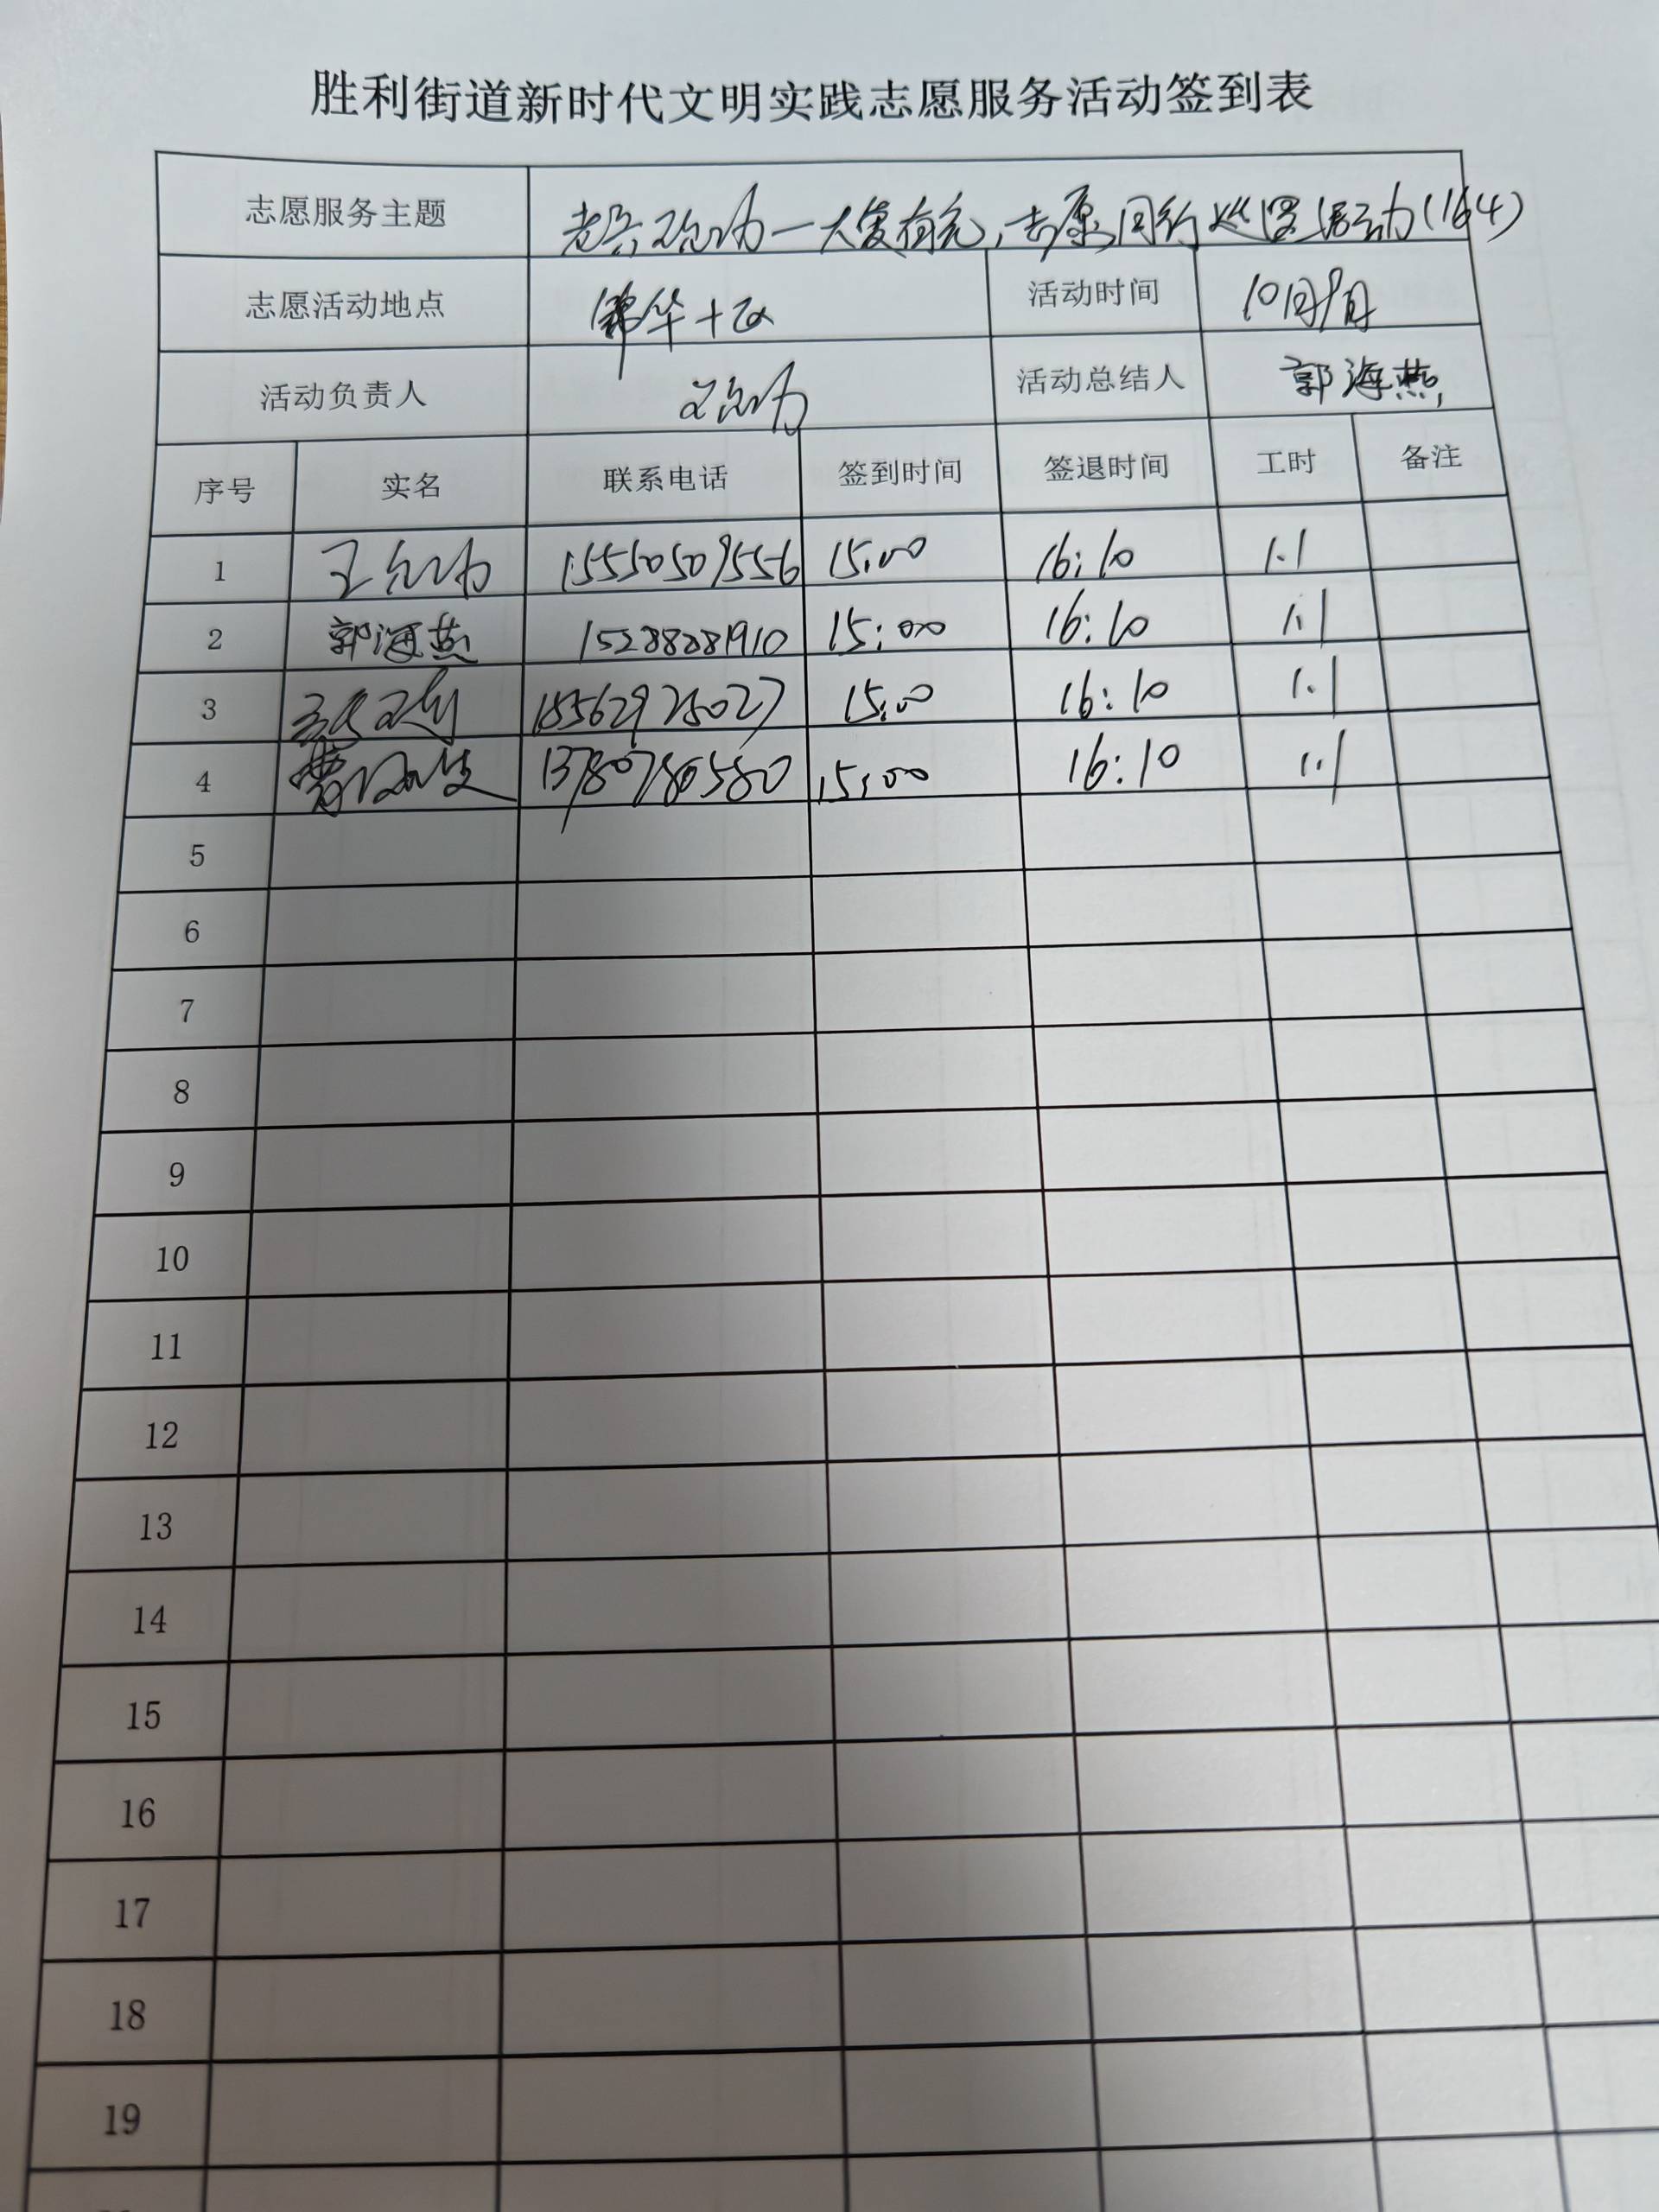 胜利街道新时代文明实践志愿服务活动签到表
志愿服务主题 老兵 志愿同行 巡逻活动(164)
志愿活动地点 锦华十区 活动时间 10月9日
活动负责人 活动总结人 郭海燕
序号 实名 联系电话 签到时间 签退时间 工时 备注
1 15550509556 15:00 16:10 1.1
2 郭海燕 15288281910 15:00 16:10 1.1
3 15:00 16:10 1.1
4 13780780580 15:00 16:10 1.1
5
6
7
8
9
10
11
12
13
14
15
16
17
18
19